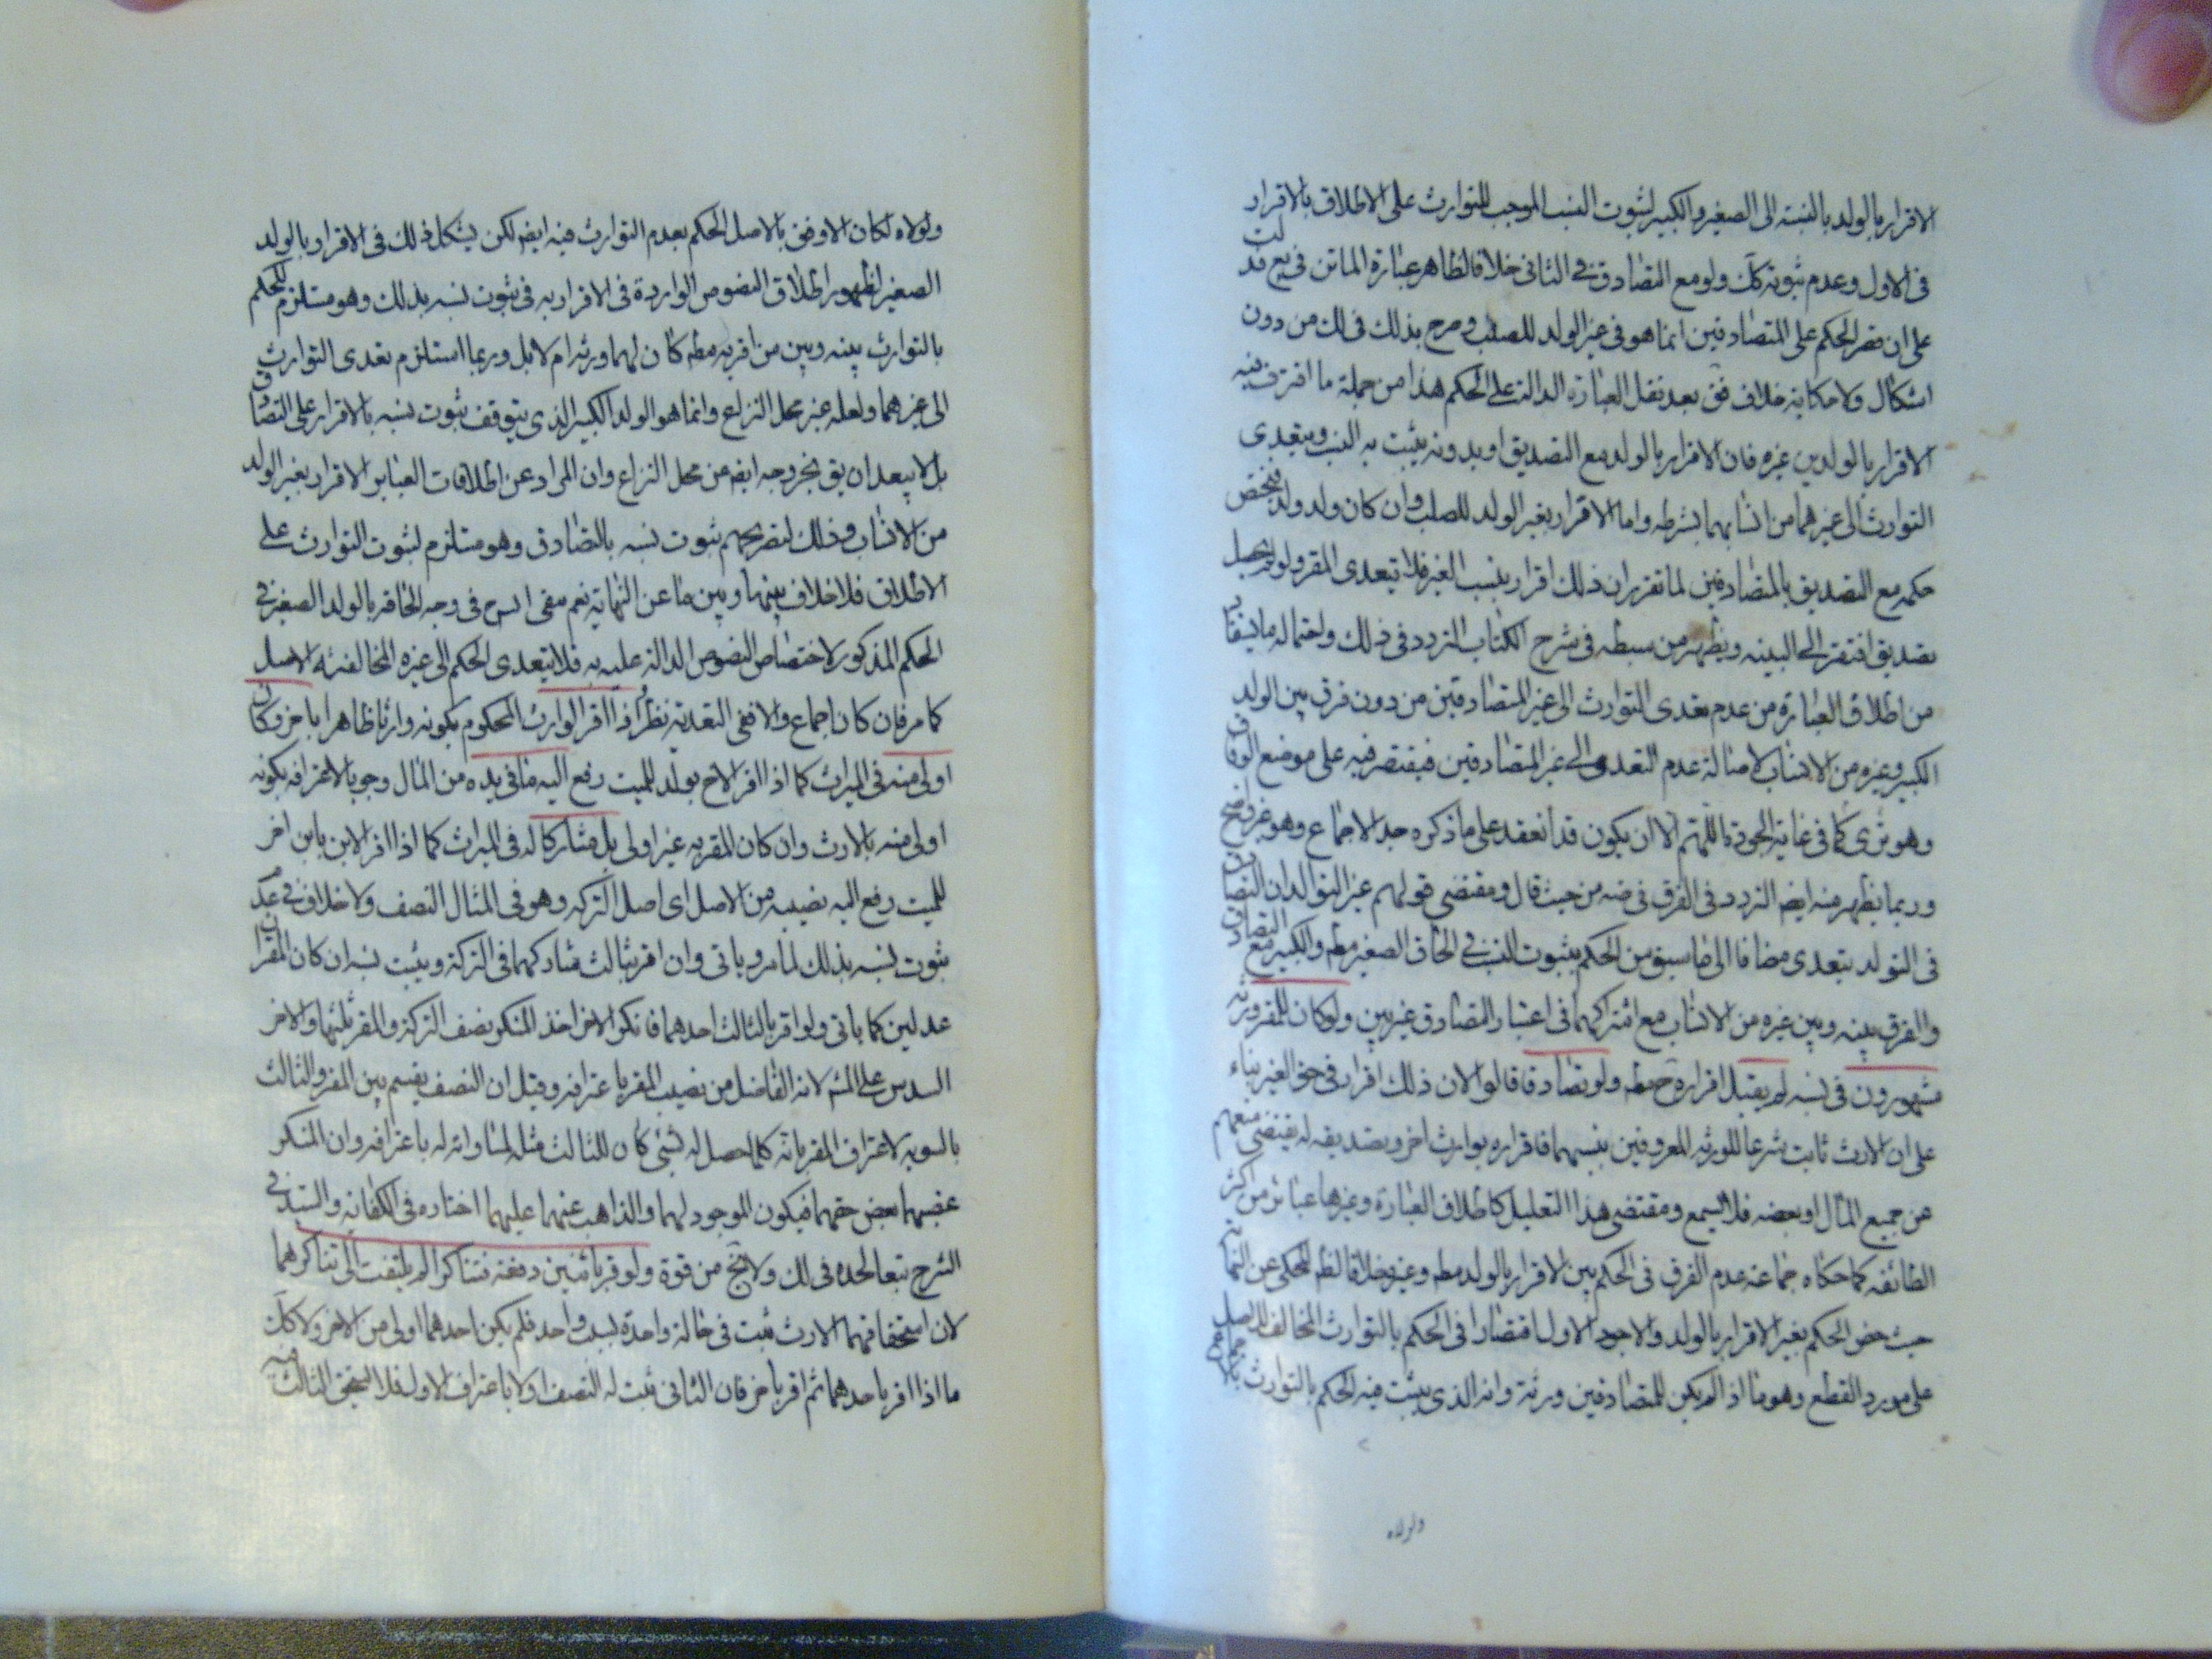 الاقرار بالولد بالنسبة الى الصغير والكبير لثبوت النسب الموجب للتوارث على الاطلاق بالاقرار
فى الاول وعدم ثبوته كك ولو مع التصادق فى الثانى خلافا لظاهر عبارة الماتن فى يع فدلت
على ان قصر الحكم على المتصادقين انما هو فى غير الولد للصلب وصرح بذلك فى لك من دون
اشكال ولا حكاية خلاف فق بعد نقل العبارة الدالة على الحكم هذا من جملة ما افترق فيه
الاقرار بالولد من غيره فان الاقرار بالولد مع التصديق او بدونه يثبت به النسب ويتعدى
التوارث الى غيرهما من انسابهما بشرطه واما الاقرار بغير الولد للصلب وان كان ولد ولد فيختص
حكمه مع التصديق بالمتصادقين لما تقرر ان ذلك اقرار بنسب الغير فلا يتعدى المقر ولو لم يحصل
تصديق افتقر الى البينه ويظهر من سبطه فى شرح الكتاب التردد فى ذلك واحتماله ما يستفاد
من اطلاق العبارة من عدم تعدى التوارث الى غير المتصادقين من دون فرق بين الولد
الكبير وغيره من الانساب لاصالة عدم التعدى الى غير المتصادقين فيقتصر فيه على موضع الوفاق
وهو ترى كما فى غاية الجودة اللهم الا ان يكون قد انعقد على ما ذكره جد الاجماع وهو غير واضح
وربما يظهر منه ايضا التردد فى الفرق فى ضه من حيث قال ومقتضى قولهم غير التوالد ان التصادق
فى التولد يتعدى مضافا الى ما سبق من الحكم بثبوت النسب فى الحاق الصغير مطه والكبير مع التصادق
والفرق بينه وبين غيره من الانساب مع اشتراكهما فى اعتبار التصادق غير بين ولو كان للمقر ورثه
مشهورون فى نسبه لم يقبل اقراره ح مطه ولو تصادقا قالوا لان ذلك اقرار فى حق الغير بناء
على ان الارث ثابت شرعا للورثه المعروفين بنسبهما فاقراره بوارث اخر وتصديقه له يقتضى منعهم
عن جميع المال او بعضه فلا يسمع ومقتضى هذا التعليل كاطلاق العبارة وغيرها عبائر من اكثر
الطائفه كما حكاه جماعة عدم الفرق فى الحكم بين الاقرار بالولد مطه وغيره خلافا لظ المحكى عن النهاية
حيث خص الحكم بغير الاقرار بالولد والاجود الاول اقتصارا فى الحكم بالتوارث المخالف للاصل
على مورد القطع وهو ما اذا لم يكن للمتصادقين ورثة وانه الذى يثبت فيه الحكم بالتوارث بالاجماع
ولولاه
ولولاه لكان الاوفق بالاصل الحكم بعدم التوارث فيه ايضا لكن يشكل ذلك فى الاقرار بالولد
الصغير لظهور اطلاق النصوص الواردة فى الاقرار به فى ثبوت نسبه بذلك وهو مستلزم للحكم
بالتوارث بينه وبين من اقر به مطه كان لهما ورثه ام لا بل وربما استلزم تعدى التوارث
الى غيرهما ولعله غير محل النزاع وانما هو الولد الكبير الذى يتوقف ثبوت نسبه بالاقرار على التصادق
بل لا يبعد ان يق بخروجه ايضا عن محل النزاع وان المراد عن اطلاقات العباير الاقرار بغير الولد
من الانساب وذلك لتصريحهم بثبوت نسبه بالتصادق وهو مستلزم لثبوت التوارث على
الاطلاق فلا خلاف بينها وبين ما عن النهاية نعم مضى فى وجه الحاقه بالولد الصغير فى
الحكم المذكور لاختصاص النصوص الدالة عليه به فلا يتعدى الحكم الى غيره المخالفته الاصل
كما مر فان كان اجماع والا ففى التعدية نظر واذا اقر الوارث المحكوم بكونه وارثا ظاهرا باخر وكان
اولى منه فى الميراث كما اذا اقر الاخ بولد للميت دفع اليه ما فى يده من المال وجوبا لاعترافه بكونه
اولى منه بالارث وان كان المقر به غير اولى بل مشاركا له فى الميراث كما اذا اقر الابن بابن اخر
للميت دفع اليه نصيبه من الاصل اى اصل التركه وهو فى المثال النصف ولا خلاف فى عدم
ثبوت نسبه بذلك لما مر وياتى وان اقر بثالث شاركهما فى التركة ويثبت نسبه ان كان المقران
عدلين كما ياتى ولو اقر بالثالث احدهما فانكر الاخر اخذ المنكر نصف التركة والمقر ثلثها والاخر
السدس على المش لانه الفاضل من نصيب المقر باعترافه وقيل ان النصف يقسم بين المقر والثالث
بالسويه لاعتراف المقر بانه كلما حصل له شئ كان للثالث مثله لمساواته له باعترافه وان المنكر
غصبهما بعض حقهما فيكون الموجود لهما والذاهب عنهما عليهما اختاره فى الكفايه والسيد فى
الشرح تبعا لجده فى لك ولا يخ من قوة ولو اقر باثنين دفعة فتناكرا لم يلتفت الى تناكرهما
لان استحقاقهما الارث ثبت فى حالة واحدة لسبب واحد فلم يكن احدهما اولى من الاخر ولا كك
ما اذا اقر باحدهما ثم اقر باخر فان الثانى ثبت له النصف اولا باعتراف الاول فلا يستحق الثالث فيه